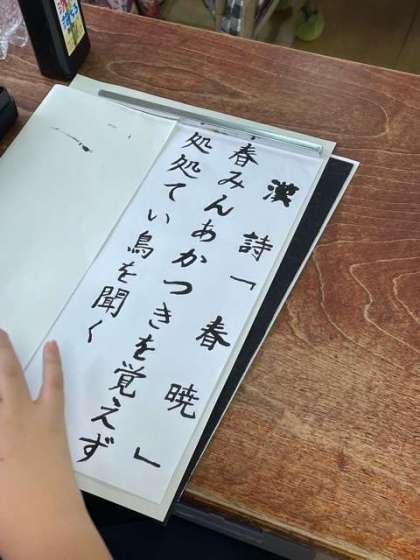 漢詩「春暁」
春みんあかつきを覚えず
処処てい鳥を聞く